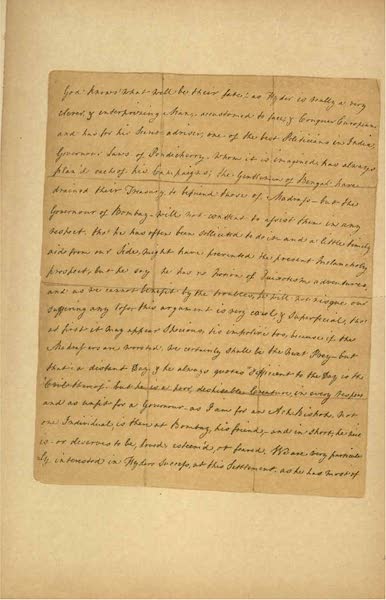 God knows what will be their fate: as Hyder is really a very
clever, & enterprising Man, accustomed to face, & Conquer Europeans
and has for his Secret adviser, one of the best Politicians in India,
Governour Laws of Pondicherry. Whom it is imagined has always
plan'd each of his Campaigns; the Gentlemen of Bengal have
drained their Treasury to befriend those of Madrass - but the
Governour of Bombay - will not consent to assist them in any
respect, tho' he has often been sollicited to do it - and a little timely
aids from our Side, might have prevented the present Melancholy
prospect, but he says he has no Notion of Quixotism adventures,
and as we cannot benefit by the troubles, he will not risque our
suffering any loss, this argument is very weak & Superficial, tho'
at first it may appear Specious, tis impolitic too, because, if the
Madrassers are worsted, we certainly shall be the Next Prey - but
that is a distant Day, & he always quotes Sufficient to the Day is the
Evil thereof: but he is a poor, despisable Creature, in every respect
and as unfit for a Governour - as I am for an Arch Bishop, Not
one Individual, is there at Bombay, his friend, - and in Short, he here
is - or deserves to be, loved, esteem'd, or feared. We are very particular
ly interested in Hyders Success, at this Settlement, as he has most of